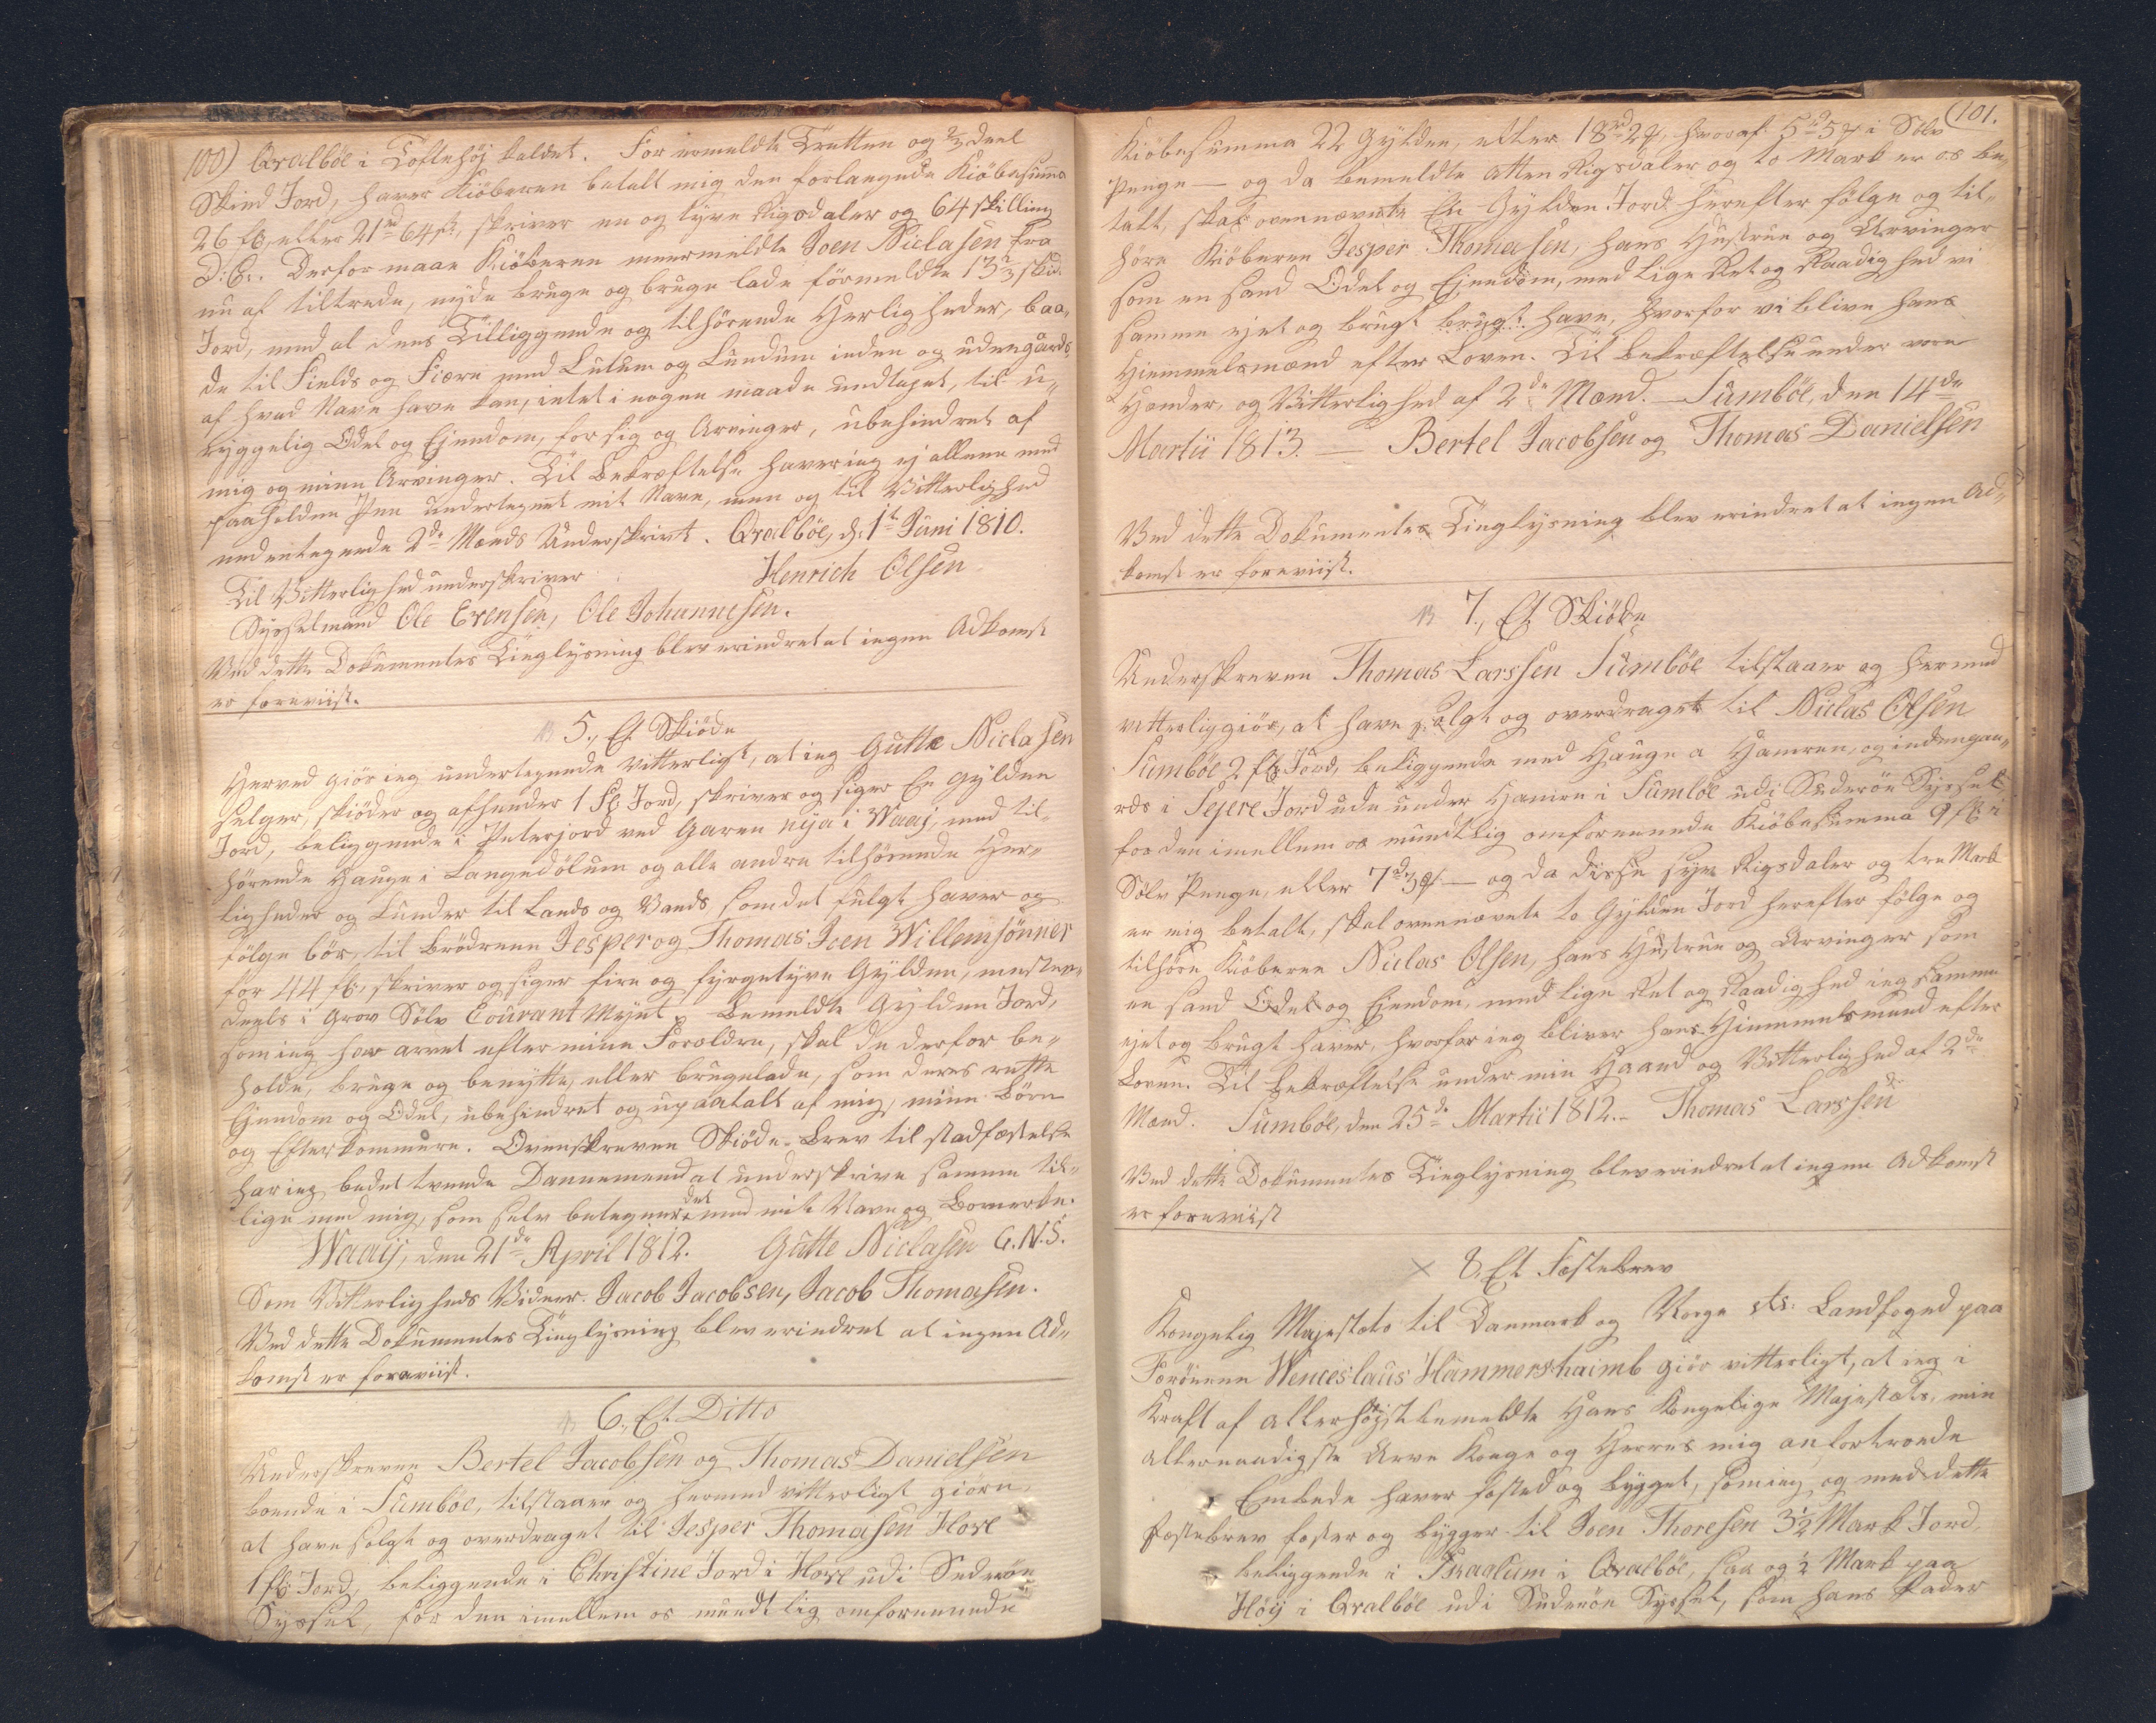 100) Qvalböe i Toftehöj kaldet. For ermeldte Tretten og 2/3 deel
Skind Jord, haver Kiöberen betalt mig den forlangende Kiöbesuma
26 fl, eller 21 rd 64 s, skriver en og tyve Rigsdaler og 64 skilling
D: C:. Derfor maae Kiöberen meermeldte Joen Niclasen fra
nu af tiltrede, nyde bruge og bruge lade formeldte 13 2/3 Skd
Jord, med al dens Tilliggende og tilhörende Herligheder, baa,,
de til Fields og Fiære med Lutum og Lundum inden og udengards,
af hvad Navn have kan, intet i nogen maade undtaget, til u,,
ryggelig Odel og Ejendom, for sig og Arvinger, ubehindret af
mig og mine Arvinger. Til Bekræftelse haver ieg ej allene med
paaholden Pen undertegnet mit Navn, men og til Vitterlighed
nedentegnede 2de Mænds Underskrivt. Qvalböe, d. 1t Juni 1810.
Til Vitterlighed underskriver Henrich Olsen
Sysselmand Ole Evensen, Ole Johannesen.
Ved dette Dokumentes Tinglysning blev erindret at ingen Adkomst
er foreviist.
5., Et Skiöde
Herved giör ieg undertegnede vitterligt, at ieg Gutte Niclasen
selger, skiöder og afhender 1 fl Jord, skriver og siger En Gylden
Jord, beliggende i Peterjord ved Garen nija i Waaj, med til,,
hörende Hauge i Langedölum og alle andre tilhörende Her,,
ligheder og Lunder til Lands og Vands som det fulgt haver og
fölge bör, til Brödrene Jesper og Thomas Joen Willemsönner
for 44 fl, skriver og siger fire og fyrgetyve Gylden, mesten,,
deels i Grov Sölv Courant Mynt. Bemeldte Gylden Jord,
som ieg har arvet efter mine Foreldre, skal de derfor be,,
holde, bruge og benytte, eller brugelade, som deres rette
Ejendom og Odel, ubehindret og upaatalt af mig, mine Börn
og Efterkommere. Ovenskreven Skiöde-Brev til stadfæstelse
har ieg bedet tvende Dannemend at underskrive samme til,,
lige med mig, som selv betegner det med mit Navn og Bomerke.
Waaij, den 21de April 1812. Gutte Niclasen G.N.S.
Som Vitterligheds Vidner. Jacob Jacobsen, Jacob Thomasen.
Ved dette Dokumentes Tinglysning blev erindret at ingen Ad,,
komst er foreviist.
6., Et Ditto
Underskreven Bertel Jacobsen og Thomas Danielsen
boende i Sumböe, tilstaaer og hermed vitterligt giöre,
at have solgt og overdraget til Jesper Thomasen Hove
1 fl Jord, beliggende i Christine Jord i Hove udi Suderöe
Syssel, for den imellem os mundtlig omforenende
101.
Kiöbesumma 22 Gylden, eller 18 rd 2 mk, hvoraf 5 rd 5 mk i Sölv
Penge — og da bemeldte Atten Rigsdaler og to Mark er os be,,
talt, skal ovennævnte En Gylden Jord herefter fölge og til,,
höre Kiöberen Jesper Thomasen, hans Hustrue og Arvinger
som en sand Odel og Ejendom, med lige Ret og Raadighed vi
samme ejet og brugt brugt have, hvorfor vi blive hans
Hiemmelsmænd efter Loven. Til Bekræftelse under vore
Hænder, og Vitterlighed af 2de Mænd. — Sumböe, den 14de
Martii 1813. — Bertel Jacobsen og Thomas Danielsen
Ved dette Dokumentes Tinglysning blev erindret at ingen Ad,,
komst er foreviist.
7., Et Skiöde
Underskreven Thomas Larssen Sumböe tilstaaer og hermed
vitterliggiör, at have solgt og overdraget til Niclas Olsen
Sumböe 2 fl Jord, beliggende med Hauge a Hamren, og indengaa,,
rds i Sejere Jord ude under Hamre i Sumböe udi Suderöe Syssel,
for den imellem os mundtlig omforenende Kiöbesumma 9 fl i
Sölv Penge, eller 7 rd 3 mk — og da disse syv Rigsdaler og tre Mark
er mig betalt, skal ovennævnte to Gylden Jord herefter fölge og
tilhöre Kiöberen Niclas Olsen, hans Hustrue og Arvinger som
en sand Odel og Ejendom, med lige Ret og Raadighed ieg samme
ejet og brugt haver, hvorfor ieg bliver hans Hiemmelsmand efter
Loven. Til Bekræftelse under min Haand og Vitterlighed af 2de
Mænd. Sumböe, den 25de Martii 1812. — Thomas Larssen
Ved dette Dokumentes Tinglysning blev erindret at ingen Adkomst
er foreviist
× 8, Et Fæstebrev
Kongelig Majestæts til Danmark og Norge etc: Landfoged paa
Færöerne Wenceslaus Hammershaimb giör vitterligt, at ieg i
Kraft af allerhöjstbemeldte Hans Kongelige Majestæts, min
allernaadigste Arve Konge og Herres mig anfortroede
Embede haver fæsted og bygget, som ieg og med dette
Fæstebrev fæster og bygger til Joen Thoresen 3 1/2 Mark Jord,
beliggende i i Qvalböe, saa og 1/2 Mark paa
Höij i Qvalböe udi Suderöe Syssel, som hans Fader